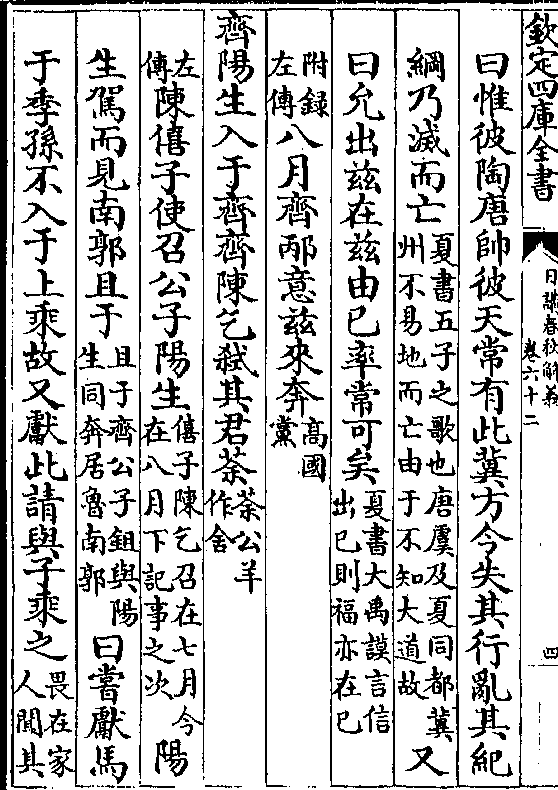 欽定四庫全書
日講春秋解義
卷六十二
四
曰惟彼陶唐帥彼天常有此冀方今失其行亂其紀
綱乃滅而亡夏書五子之歌也唐虞及夏同都冀州不易地而亡由于不知大道故又
曰允出茲在茲由已率常可矣夏書大禹謨言信出已則福亦在已
附録左傳八月齊邴意茲來奔高國黨
齊陽生入于齊齊陳乞弑其君荼荼公羊作舍
左傳陳僖子使召公子陽生僖子陳乞召在七月今在八月下記事之次陽
生駕而見南郭且于且于齊公子鉏與陽生同奔居魯南郭曰嘗獻馬
于季孫不入于上乘故又獻此請與子乘之畏在家人聞其